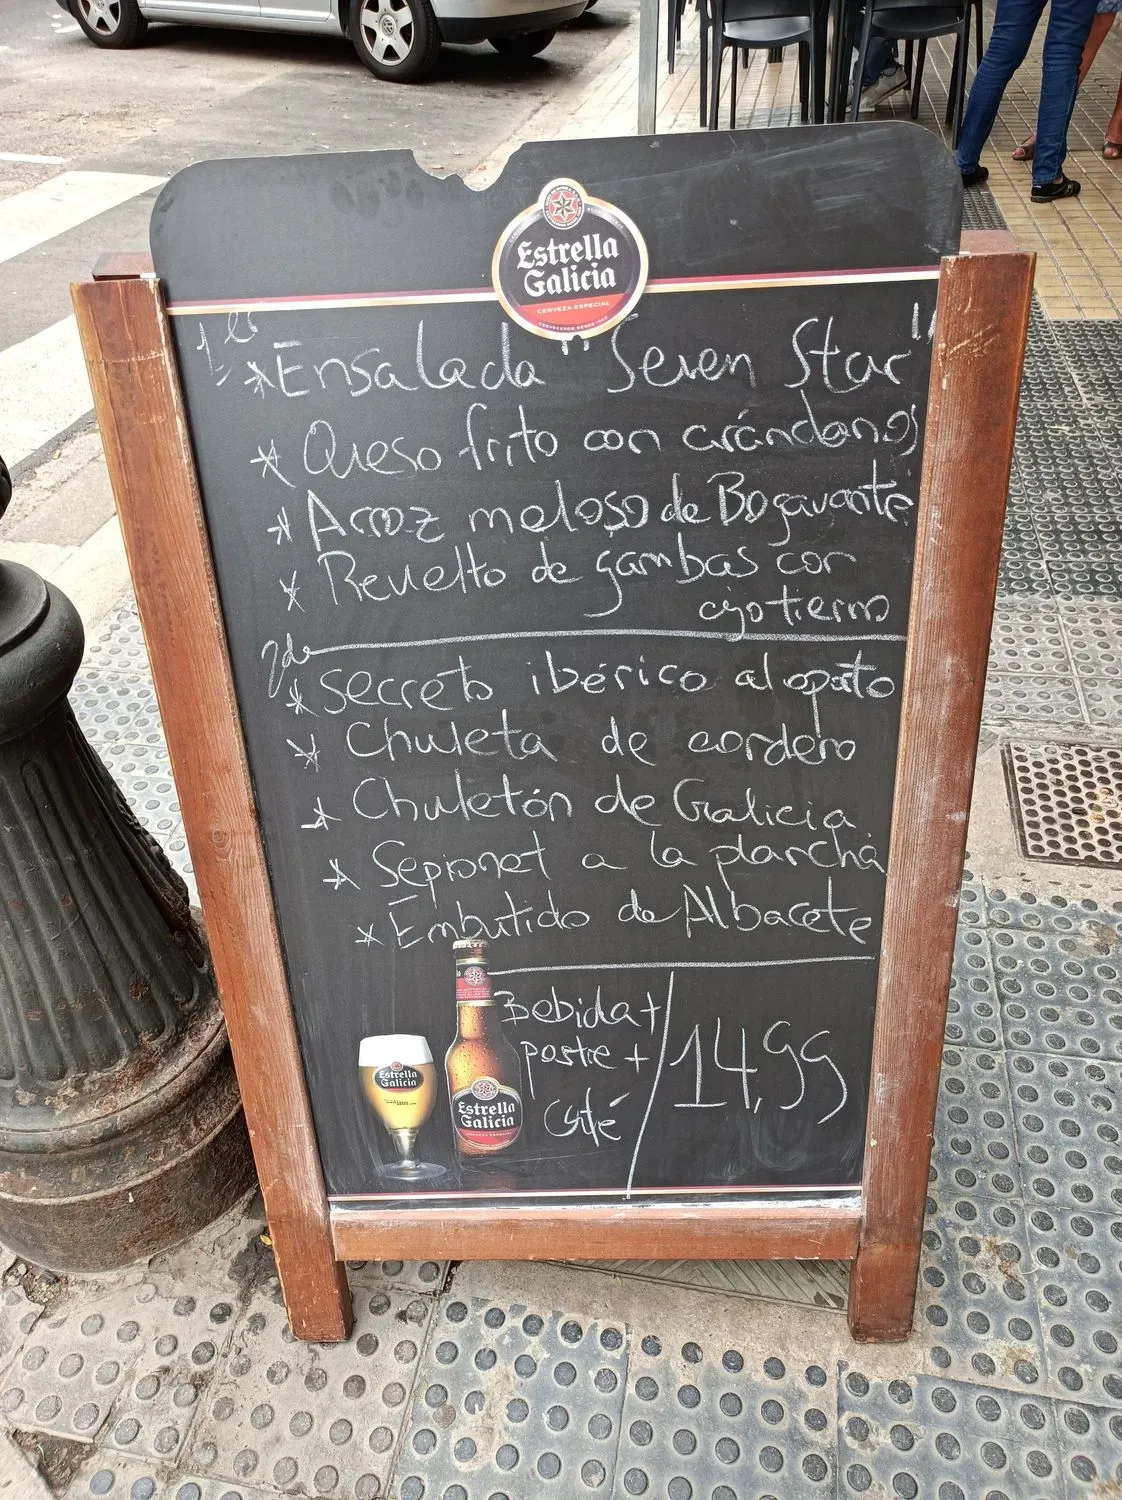 Estrella
Galicia
CERVEZA ESPECIAL
CERVECEROS DESDE 1906
1er
* Ensalada "Seven Star"
* Queso frito con arándanos
* Arroz meloso de Bogavante
* Revuelto de gambas con
ajo tierno
2do
* Secreto ibérico al oporto
* Chuleta de cordero
* Chuletón de Galicia
* Sepionet a la plancha
* Embutido de Albacete
Bebida +
postre +
Café
14,99
Estrella
Galicia
Estrella
Galicia